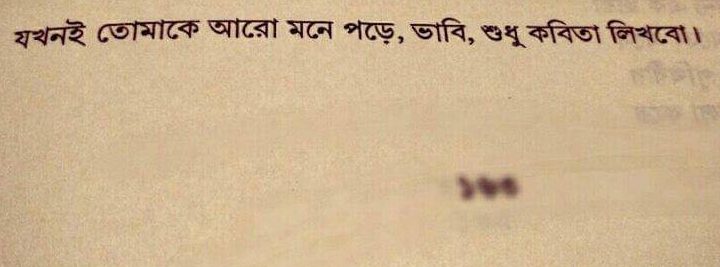 যখনই তোমাকে আরো মনে পড়ে, ভাবি, শুধু কবিতা লিখবো।